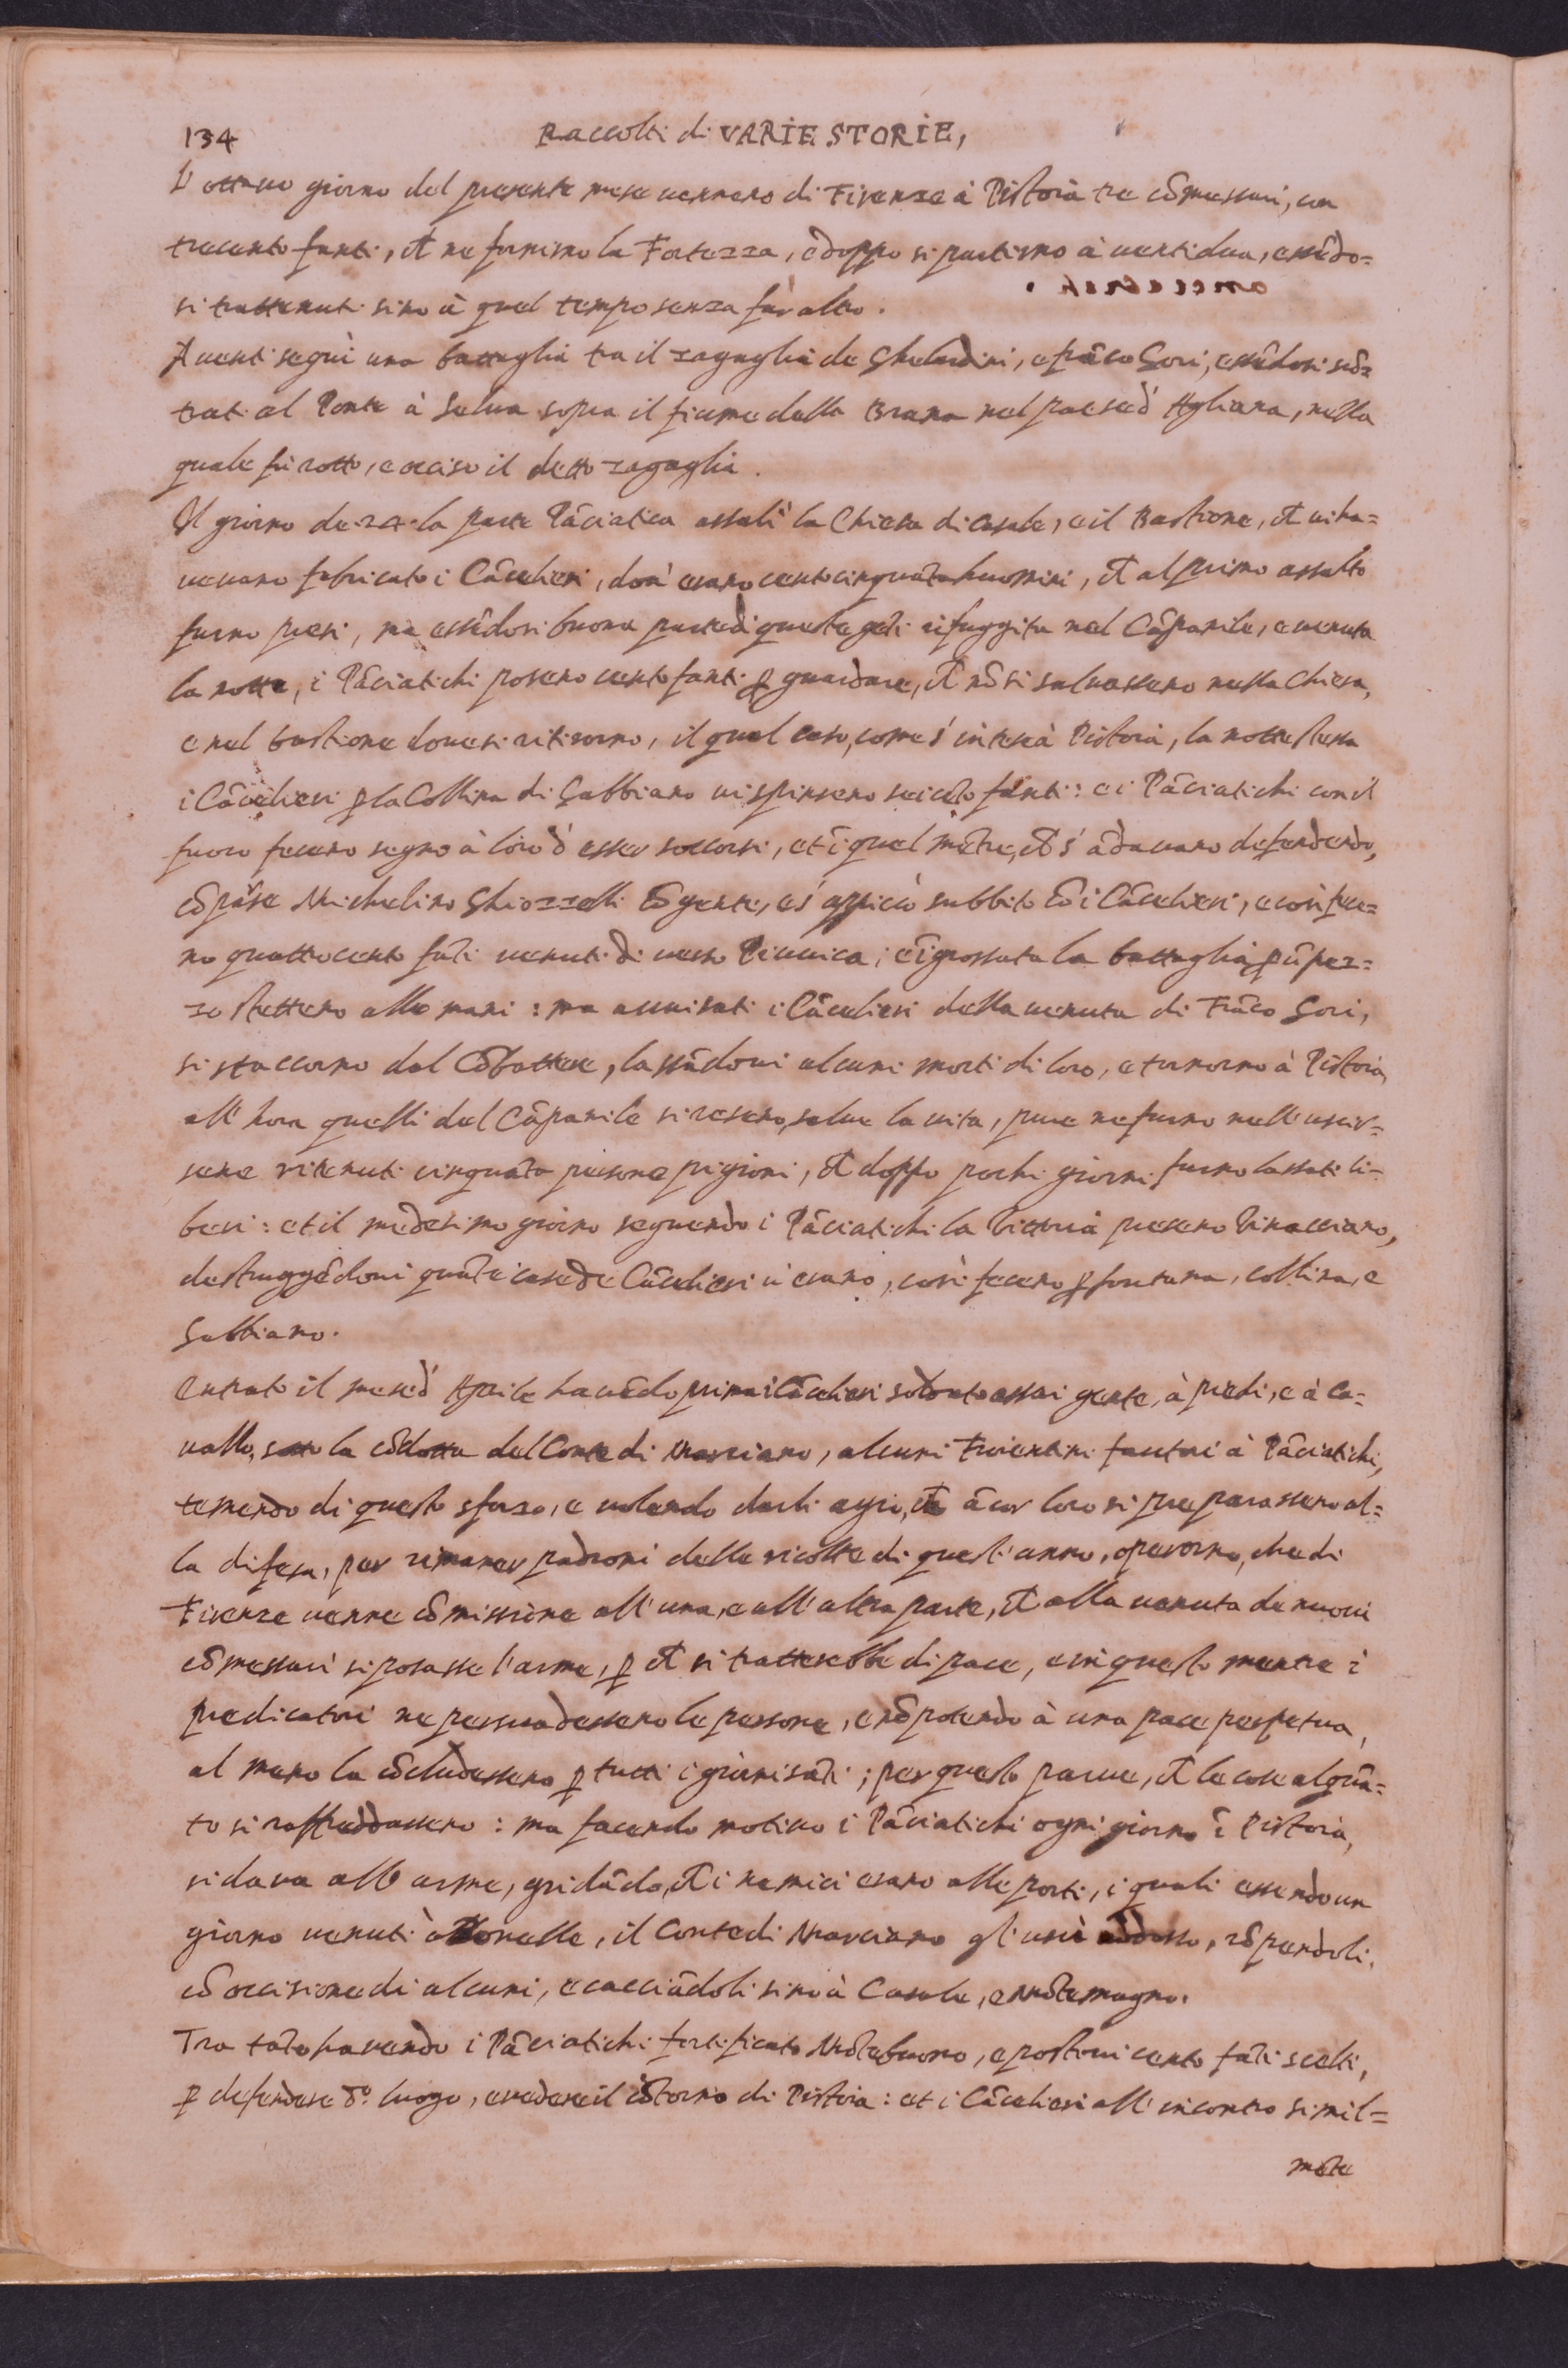 134
Raccolti di VARIE STORIE,
L'ottavo giorno del presente mese vennero di Firenze à Pistoia tre cōmessari, con
trecento fanti, et ne fornirno la Fortezza, e doppo si partirno à venti dua, essēdo=
si trattenuti sino à quel tempo senza far altro.
A venti seguì una battaglia tra il zagaglia de Ghelardini, e frāco Gori, essēdosi scō=
trati al Ponte à Selva sopra il fiume della Brana nel paese d'Agliana, nella
quale fu rotto, e occiso il detto zagaglia.
Il giorno de 24 la parte Pāciatica assalì la Chiesa di Casale, e il Bastione, et vi ha=
vevano fabricato i Cācelieri, dov'erano cento cinquāta huomini, et al primo assalto
furno presi, ma essēdosi buona parte di questa gēti rifuggita nel Cāpanile, e venuta
la notte, i Pāciatichi posero cento fanti ꝑ guardare, et nō si salvassero nella Chiesa,
e nel bastione dove si ritirorno, il qual caso, come s'intese à Pistoia, la notte stessa
i Cācelieri ꝑ la Collina di Gabbiano vi spinsero seicēto fanti: e i Pāciatichi con il
fuoco fecero segno à loro d'esser soccorsi, et ī quel mētre, et s'ādavano defendendo,
cōparse Michelino Ghiozzelli cō gente, e s'appiccò subbito cō i Cācelieri, e così fece=
no quattrocento fāti venuti di verso Piuvica; e īgrossata la battaglia, ꝑ ū pez=
zo stettero alle mani: ma avvisati i Cācelieri della venuta di Frāco Gori,
si staccorno dal Cōbattere, lassādovi alcuni morti di loro, e tornorno à Pistoia,
all'hora quelli del Cāpanile si resero, salve la vita, pure ne furno nell'uscir=
sene ritenuti cinquāta persone prigioni, et doppo pochi giorni furno lassati li=
beri: et il medesimo giorno seguendo i Pāciatichi la Vittoria presero Vinacciano,
destruggēdovi quāte case de Cācelieri v'erano, così fecero ꝑ fontana, collina, e
Gabbiano.
Entrato il mese d'Aprile havēdo prima i Cācelieri soldato assai gente, à piedi, e à ca=
vallo, sotto la cōdotta del Conte di Marciano, alcuni Fiorentini fautori à Pāciatichi,
temendo di questo sforzo, e volendo darli agio, et ācor loro si preparassero al=
la difesa, per rimaner padroni delle ricolte di quest'anno, operorno, che di
Firenze venne cōmissione all'una, e all'altra parte, et alla venuta de nuovi
cōmessari si posasse l'arme, ꝑ et si tratterebbe di pace, e in questo mentre i
predicatori ne persuadessero le persone, e nō potendo à una pace perpetua,
al meno la cōcludessero ꝑ tutti i giorni sāti; per questo parve, et le cose alquā=
to si raffreddassero: ma facendo motivo i Pāciatichi ogni giorno ī Pistoia,
si dava all'arme, gridādo, et i nemici erano alle porti, i quali essendo un
giorno venuti à Bonelle, il Conte di Marciano gl'uscì addosso, rōpendoli,
cō occisione di alcuni, e cacciādoli sino à Casale, e Mōtemagno.
Tra tāto havendo i Pāciatichi fortificato Mōtebuono, e postovi cento fāti scelti,
ꝑ defendere d.º luogo, e vedere il cōtorno di Pistoia: et i Cācelieri all'incontro simil=
mēte